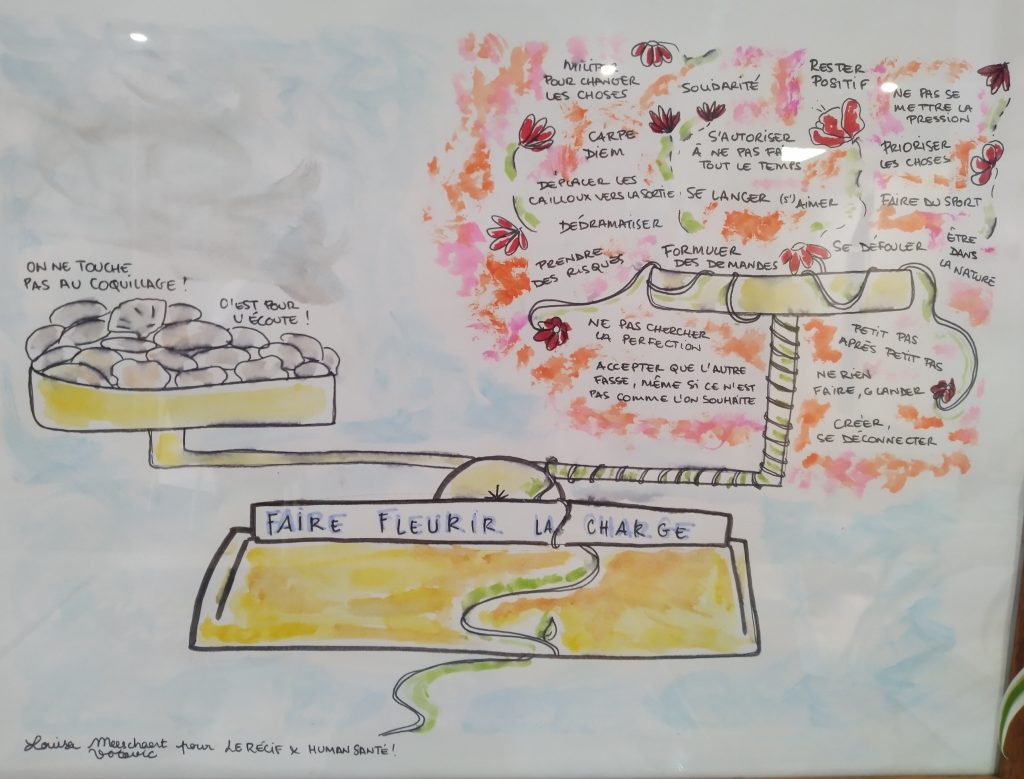 ON NE TOUCHE
PAS AU COQUILLAGE !
C'EST POUR
L'ÉCOUTE !
POUR CHANGER
LES CHOSES
SOLIDARITÉ
RESTER
POSITIF
NE PAS SE
METTRE LA
PRESSION
CARPE
DIEM
S'AUTORISER
À NE PAS
TOUT LE TEMPS
PRIORISER
LES CHOSES
DÉPLACER LES
CAILLOUX VERS LA SORTIE
SE LANCER
(S')AIMER
FAIRE DU SPORT
DÉDRAMATISER
PRENDRE
DES RISQUES
FORMULER
DES DEMANDES
SE DÉFOULER
ÊTRE
DANS
LA NATURE
NE PAS CHERCHER
LA PERFECTION
ACCEPTER QUE L'AUTRE
FASSE, MÊME SI CE N'EST
PAS COMME L'ON SOUHAITE
PETIT PAS
APRÈS PETIT PAS
NE RIEN
FAIRE, GLANDER
CRÉER,
SE DÉCONNECTER
FAIRE FLEURIR LA CHARGE
Louisa Meeschaert pour LE RÉCIF x HUMAN SANTÉ !